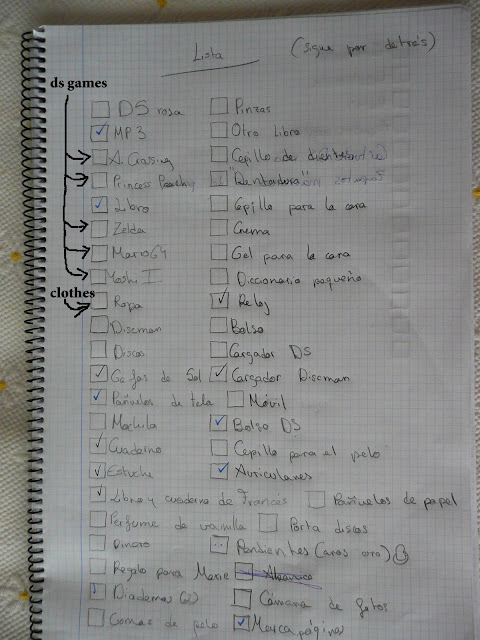 Lista (sigue por detrás)
ds games
DS rosa
MP3
Princess Peach
Libro
Zelda
Mario 64
Yoshi I
clothes
Ropa
Discman
Discos
Gafas de Sol
Pañuelos de tela
Mochila
Cuaderno
Estuche
Libro y cuaderno de Francés
Perfume de vainilla
Dinero
Regalo para Marie
Diademas (2)
Gomas de pelo
Pinzas
Otro libro
Cepillo de dientes
"Dentadura"
Cepillo para la cara
Crema
Gel para la cara
Diccionario pequeño
Reloj
Bolso
Cargador DS
Cargador Discman
Móvil
Bolso DS
Cepillo para el pelo
Auriculares
Pañuelos de papel
Porta discos
Pendientes (aros oro)
Abanico
Cámara de fotos
Marca páginas